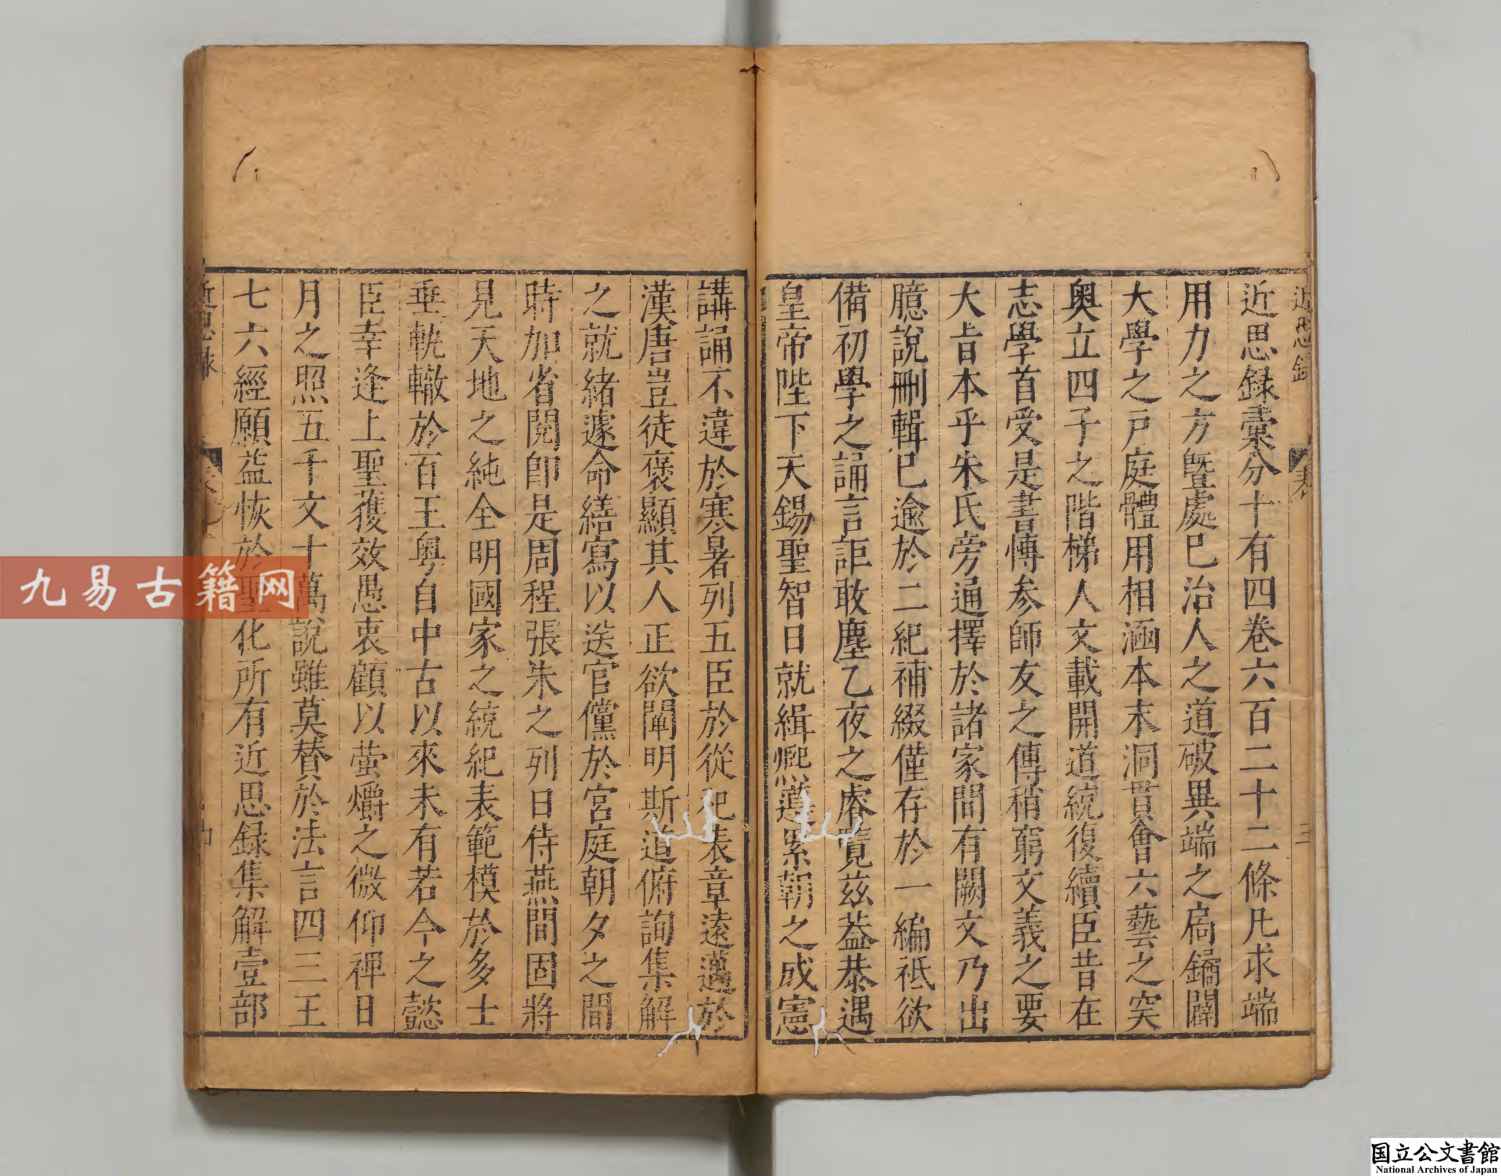 近思録
近思録彙分十有四卷六百二十二條凡求端
用力之方曁處巳治人之道破異端之扃鐍闢
大學之戸庭體用相涵本末洞貫會六藝之突
奥立四子之階梯人文載開道統復續臣昔在
志學首受是書博参師友之傳稍窮文義之要
大㫖本乎朱氏旁通擇於諸家間有闕文乃出
臆說刪輯巳逾於二紀補綴僅存於一編祗欲
備初學之誦言詎敢塵乙夜之睿覽兹葢恭遇
皇帝陛下天錫聖智日就緝熈遵累朝之成憲
講誦不違於寒暑列五臣於從祀表章逺邁於
漢唐豈徒褒顯其人正欲闡明斯道俯詢集解
之就緒遽命繕寫以送官儻於宮庭朝夕之間
時加省閱卽是周程張朱之列日侍燕間固將
見天地之純全明國家之統紀表範模於多士
垂軌轍於百王粤自中古以來未有若今之懿
臣幸逢上聖獲效愚衷顧以萤爝之微仰禆日
月之照五千文十萬說雖莫賛於法言四三王
七六經願益恢於聖化所有近思録集解壹部
近思録
九易古籍网
国立公文書館
National Archives of Japan